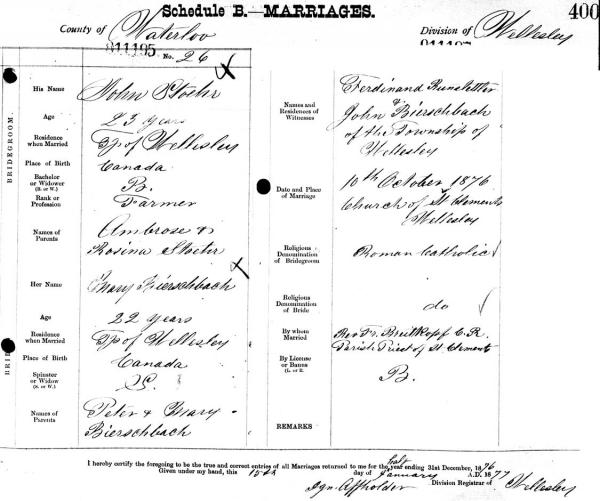 Schedule B.—MARRIAGES.
400
County of Waterloo
Division of Wellesley
011195 No. 26
BRIDEGROOM.
His Name John Stoehr
Age 23 years
Residence when Married Tp of Wellesley
Place of Birth Canada
Bachelor or Widower (B. or W.) B.
Rank or Profession Farmer
Names of Parents Ambrose &
Rosina Stoehr
Her Name Mary Bierschbach
Age 22 years
Residence when Married Tp of Wellesley
Place of Birth Canada
Spinster or Widow (S. or W.) S.
Names of Parents Peter & Mary
Bierschbach
Names and Residences of Witnesses Ferdinand Runstettler
& John Bierschbach
of the Township of
Wellesley
Date and Place of Marriage 10th October 1876
Church of St Clements
Wellesley
Religious Denomination of Bridegroom Roman Catholic
Religious Denomination of Bride do
By whom Married Rev Fr. Breitkopf C.R.
Parish Priest of St. Clements
By License or Banns (L. or B.) B.
REMARKS
I hereby certify the foregoing to be the true and correct entries of all Marriages returned to me for the half year ending 31st December, 1876
Given under my hand, this 15th day of January A.D. 1877
Ign Affholder Division Registrar of Wellesley